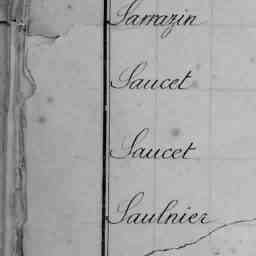 Sarrazin
Saucet
Saucet
Saulnier